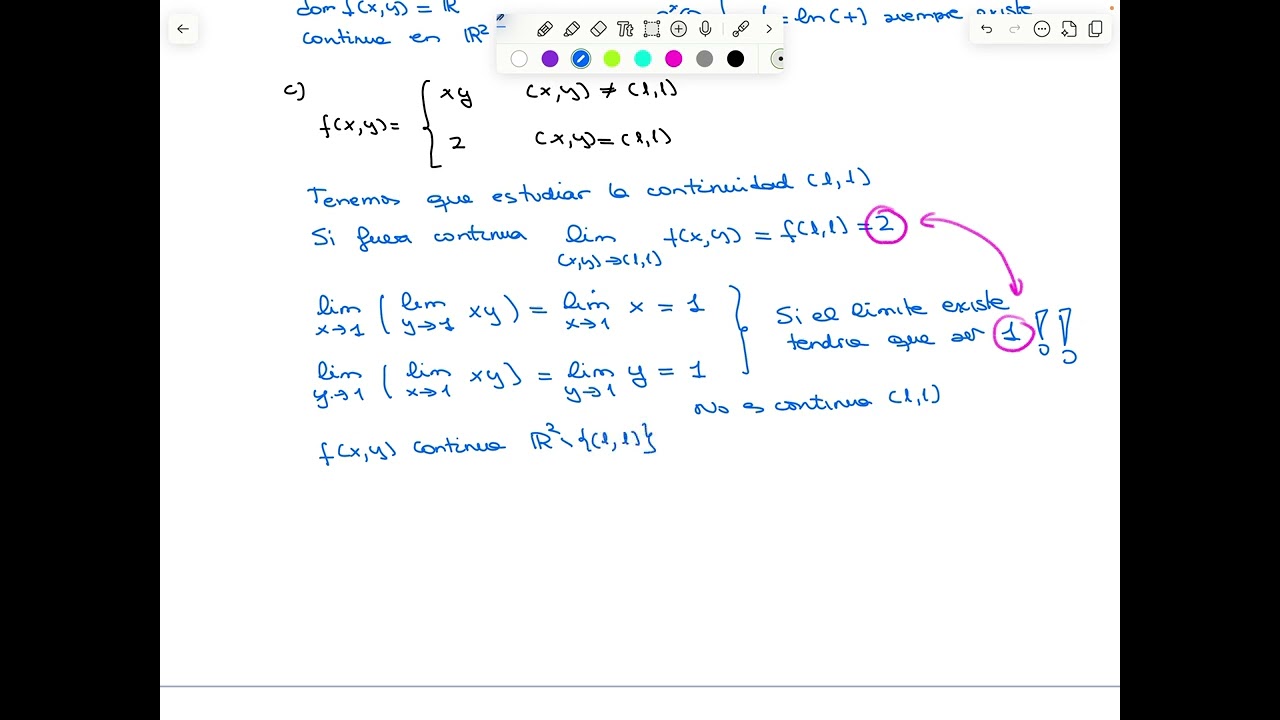 dom f(x,y) = ℝ
continua en ℝ²
= ln(+) siempre existe
c)
f(x,y)= { xy (x,y) ≠ (1,1)
2 (x,y)= (1,1)
Tenemos que estudiar la continuidad (1,1)
Si fuera continua lim (x,y)→(1,1) f(x,y) = f(1,1) = 2
lim x→1 ( lim y→1 xy ) = lim x→1 x = 1
lim y→1 ( lim x→1 xy ) = lim y→1 y = 1
Si el límite existe
tendría que ser 1 !!
No es continua (1,1)
f(x,y) continua ℝ²\{(1,1)}